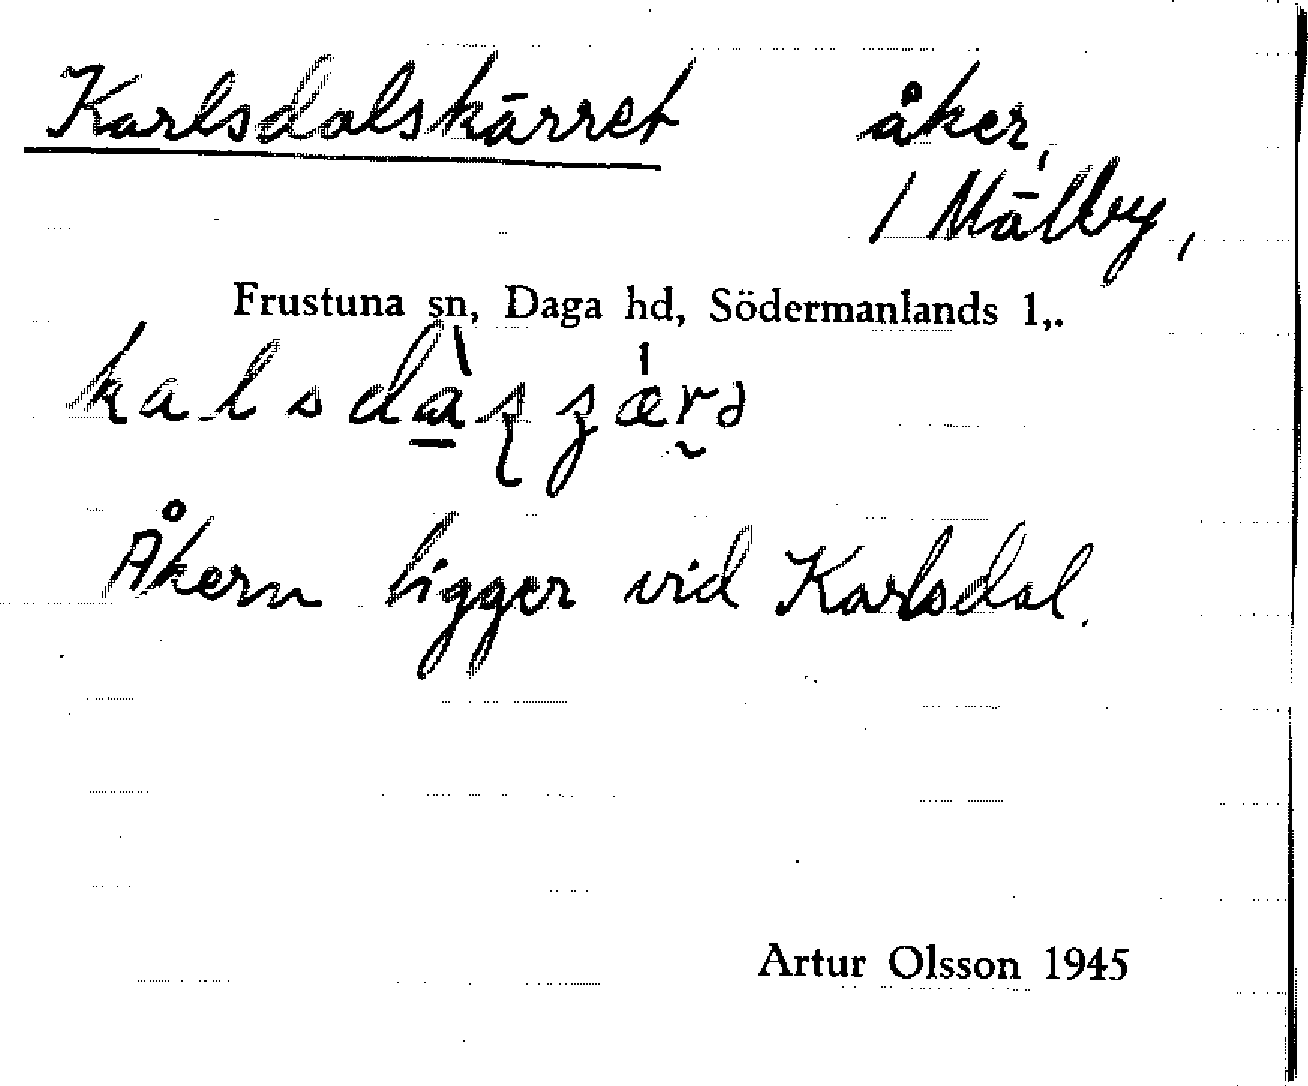 Karlsdalskärret åker,
1 Mälby,
Frustuna sn, Daga hd, Södermanlands l,.
Åkern ligger vid Karlsdal.
Artur Olsson 1945